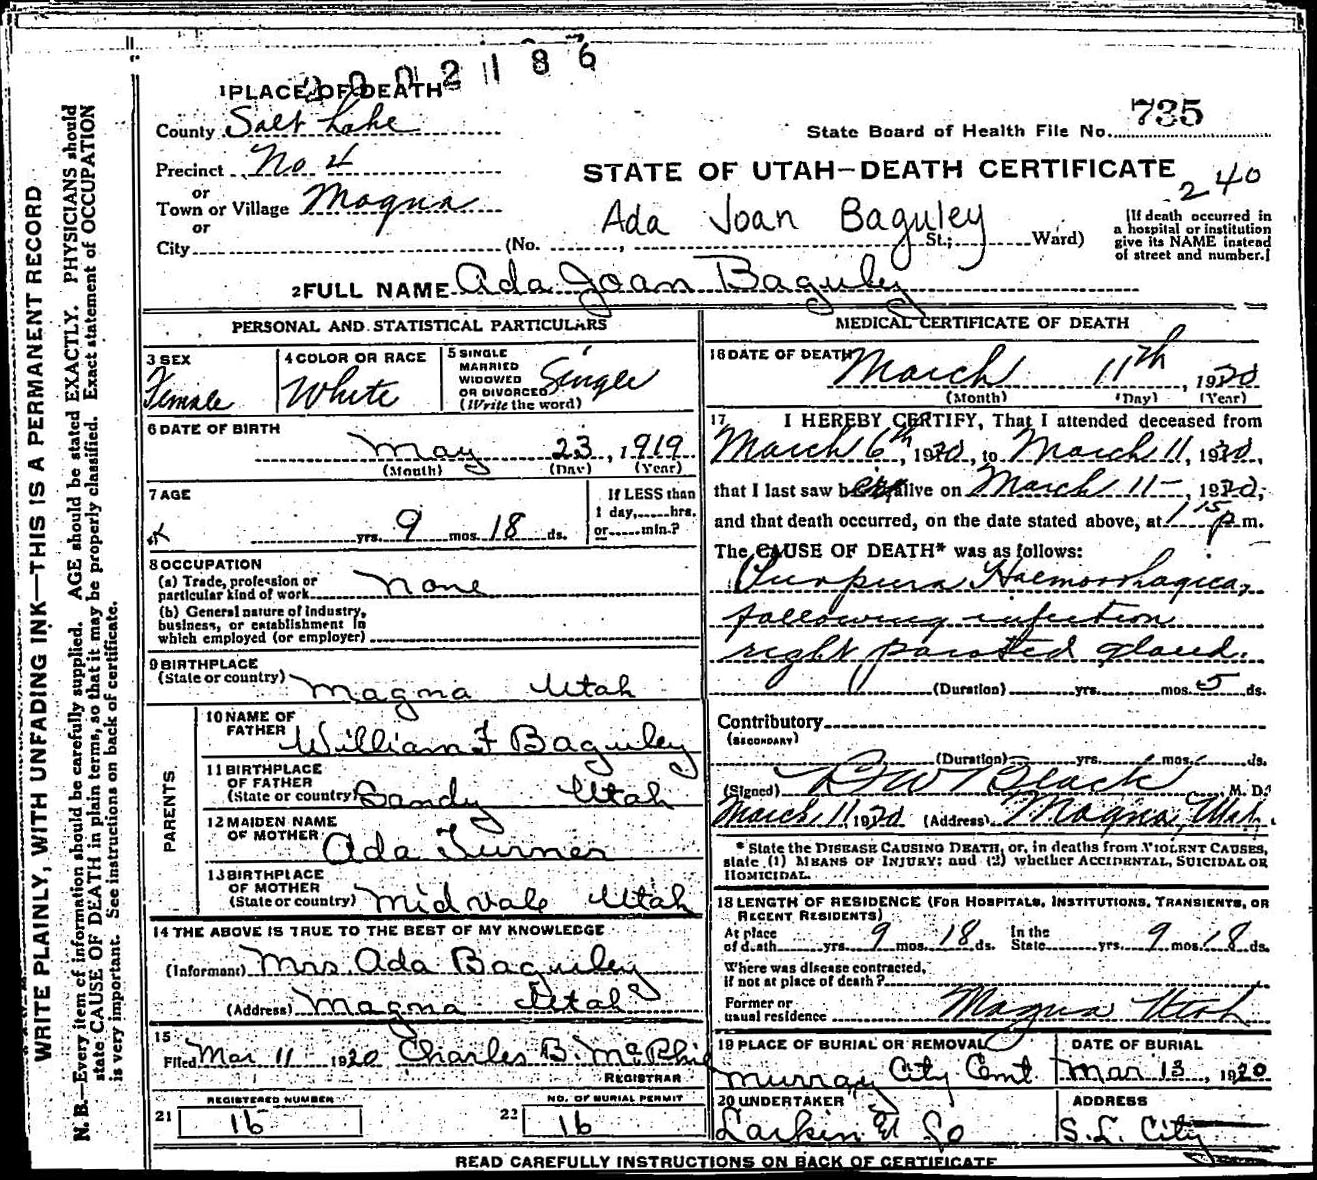 2002186
1 PLACE OF DEATH
County Salt Lake
State Board of Health File No. 735
Precinct No 4
STATE OF UTAH—DEATH CERTIFICATE
240
or
Town or Village Magna
or
City (No. , St.; Ward)
Ada Joan Baguley
[If death occurred in
a hospital or institution
give its NAME instead
of street and number.]
2 FULL NAME Ada Joan Baguley
PERSONAL AND STATISTICAL PARTICULARS
3 SEX Female
4 COLOR OR RACE White
5 SINGLE
MARRIED
WIDOWED
OR DIVORCED
(Write the word) Single
6 DATE OF BIRTH
May 23, 1919
(Month) (Day) (Year)
7 AGE
yrs. 9 mos. 18 ds.
If LESS than
1 day, hrs.
or min.?
8 OCCUPATION
(a) Trade, profession or
particular kind of work None
(b) General nature of industry,
business, or establishment in
which employed (or employer)
9 BIRTHPLACE
(State or country) Magna Utah
PARENTS
10 NAME OF
FATHER William F Baguley
11 BIRTHPLACE
OF FATHER
(State or country) Sandy Utah
12 MAIDEN NAME
OF MOTHER Ada Turner
13 BIRTHPLACE
OF MOTHER
(State or country) Midvale Utah
14 THE ABOVE IS TRUE TO THE BEST OF MY KNOWLEDGE
(Informant) Mrs Ada Baguley
(Address) Magna Utah
15
Filed Mar 11 1920 Charles B. McPhie
REGISTRAR
REGISTERED NUMBER
21 16
NO. OF BURIAL PERMIT
22 16
MEDICAL CERTIFICATE OF DEATH
16 DATE OF DEATH
March 11th, 1920
(Month) (Day) (Year)
17 I HEREBY CERTIFY, That I attended deceased from
March 6th, 1920, to March 11, 1920,
that I last saw her alive on March 11—, 1920,
and that death occurred, on the date stated above, at 1 15 p m.
The CAUSE OF DEATH* was as follows:
Purpura Haemorrhagica,
following infection
right parotid gland.
(Duration) yrs. mos. 5 ds.
Contributory
(SECONDARY)
(Duration) yrs. mos. ds.
(Signed) Black M. D.
March 11, 1920 (Address) Magna, Utah.
*State the DISEASE CAUSING DEATH, or, in deaths from VIOLENT CAUSES,
state (1) MEANS OF INJURY; and (2) whether ACCIDENTAL, SUICIDAL OR
HOMICIDAL.
18 LENGTH OF RESIDENCE (FOR HOSPITALS, INSTITUTIONS, TRANSIENTS, OR
RECENT RESIDENTS)
At place
of death yrs. 9 mos. 18 ds. In the
State yrs. 9 mos. 18 ds.
Where was disease contracted,
if not at place of death?
Former or
usual residence Magna Utah
19 PLACE OF BURIAL OR REMOVAL
Murray City Cmt.
DATE OF BURIAL
Mar 13, 1920
20 UNDERTAKER
Larkin & Co
ADDRESS
S.L. City
READ CAREFULLY INSTRUCTIONS ON BACK OF CERTIFICATE
WRITE PLAINLY, WITH UNFADING INK—THIS IS A PERMANENT RECORD
N. B.—Every item of information should be carefully supplied. AGE should be stated EXACTLY. PHYSICIANS should
state CAUSE OF DEATH in plain terms, so that it may be properly classified. Exact statement of OCCUPATION
is very important. See instructions on back of certificate.